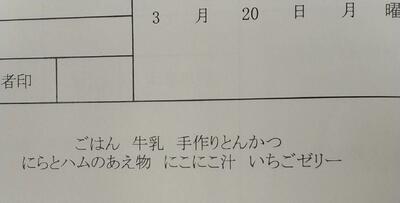 3 月 20 日 月 曜
者印
ごはん 牛乳 手作りとんかつ
にらとハムのあえ物 にこにこ汁 いちごゼリー